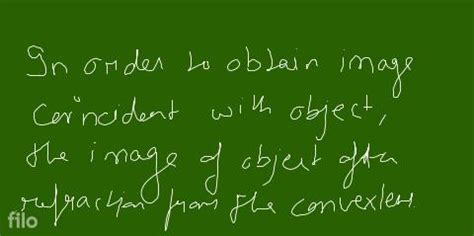 In order to obtain image
coincident with object,
the image of object after
refraction from the convex lens.
filo